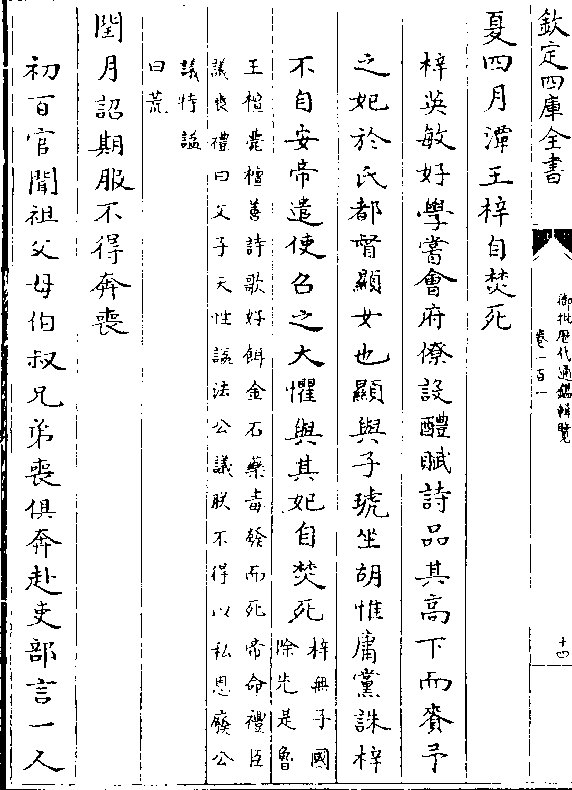 欽定四庫全書
御批歷代通鑑輯覽
卷一百一
十四
夏四月潭王梓自焚死
梓英敏好學嘗會府僚設醴賦詩品其高下而賚予
之妃於氏都督顯女也顯與子琥坐胡惟庸黨誅梓
不自安帝遣使召之大懼與其妃自焚死
梓無子國
除先是魯
王檀薨檀善詩歌好餌金石藥毒發而死帝命禮臣
議喪禮曰父子天性諡法公議朕不得以私恩廢公
議特諡
曰荒
閏月詔期服不得奔喪
初百官聞祖父母伯叔兄弟喪俱奔赴吏部言一人